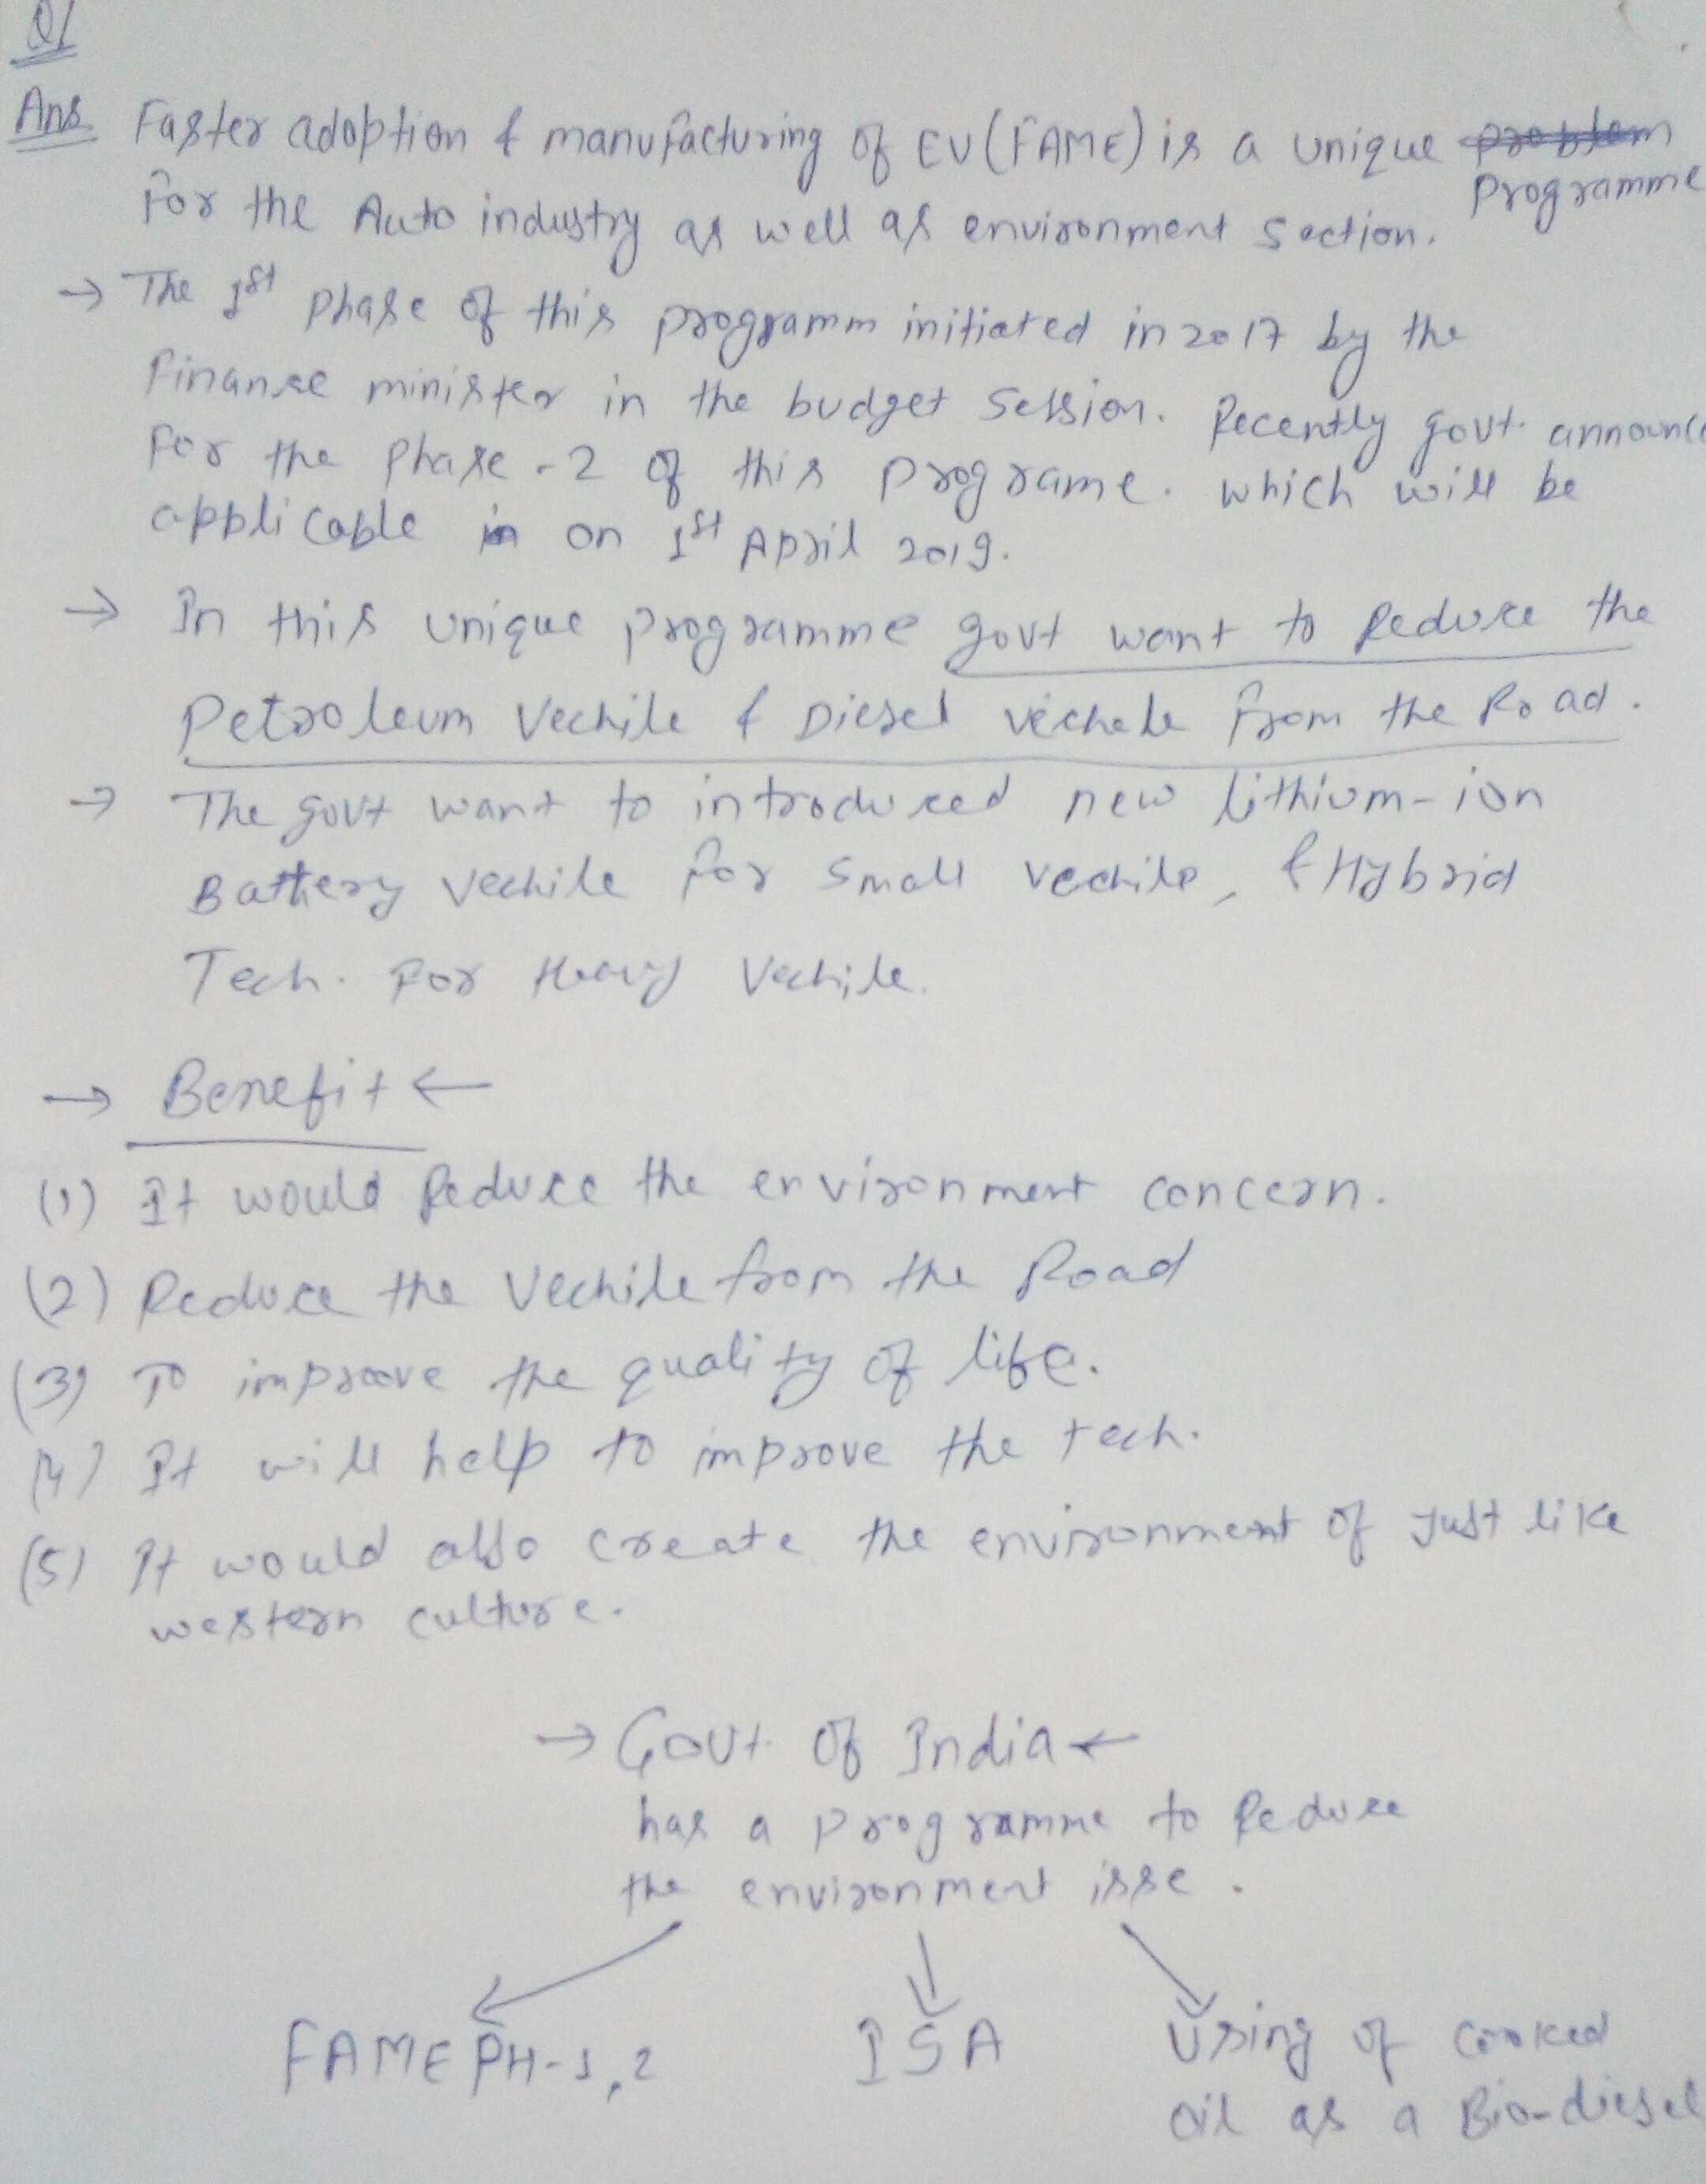 Q1
Ans Faster adoption & manufacturing of EV (FAME) is a unique problem
Programme
for the Auto industry as well as environment section.
→ The 1st phase of this programm initiated in 2017 by the
finance minister in the budget session. Recently govt. announce
for the phase-2 of this programe. which will be
applicable in on 1st April 2019.
→ In this unique programme govt want to Reduce the
Petroleum Vechile & Diesel vechele from the Road.
→ The govt want to introduced new lithium-ion
Battery Vechile for small vechile, & Hybrid
Tech. for Heavy Vechile.
→ Benefit ←
(1) It would Reduce the environment concern.
(2) Reduce the Vechile from the Road
(3) To improove the quality of life.
(4) It will help to improve the tech.
(5) It would also create the environment of just like
western culture.
→ Govt. of India ←
has a programme to Reduce
the environment isse.
FAME PH-1,2 ISA Using of cooked
oil as a Bio-diesel